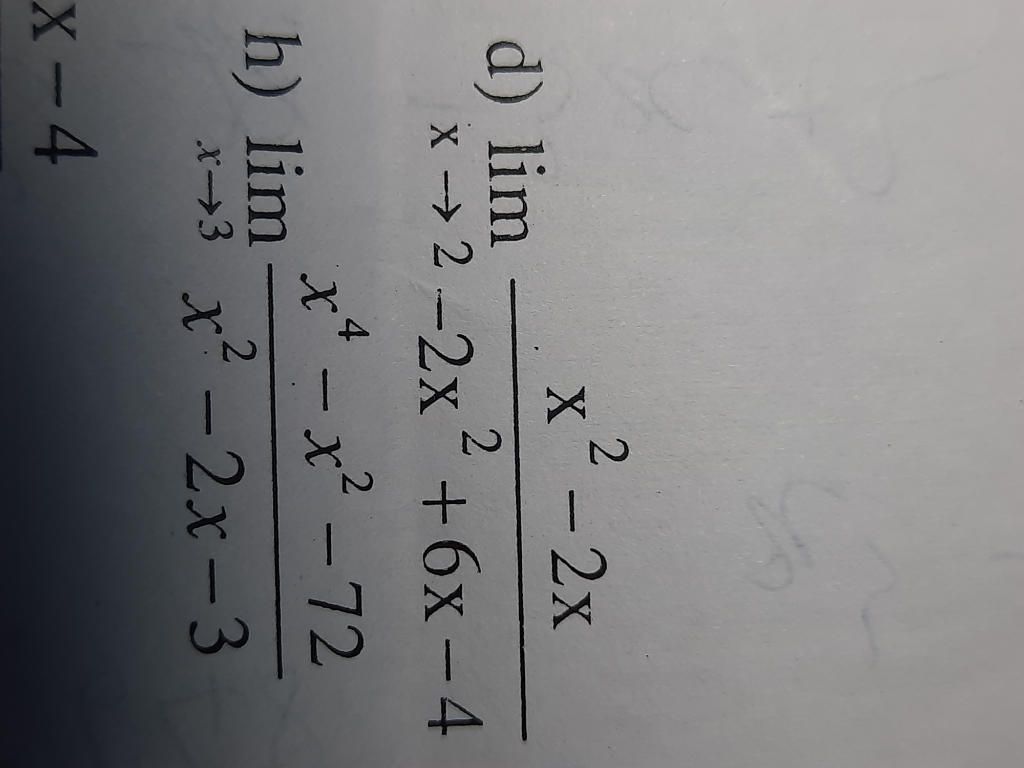 d) lim x² − 2x
x → 2 −2x² + 6x − 4
h) lim x⁴ − x² − 72
x→3 x² − 2x − 3
x − 4